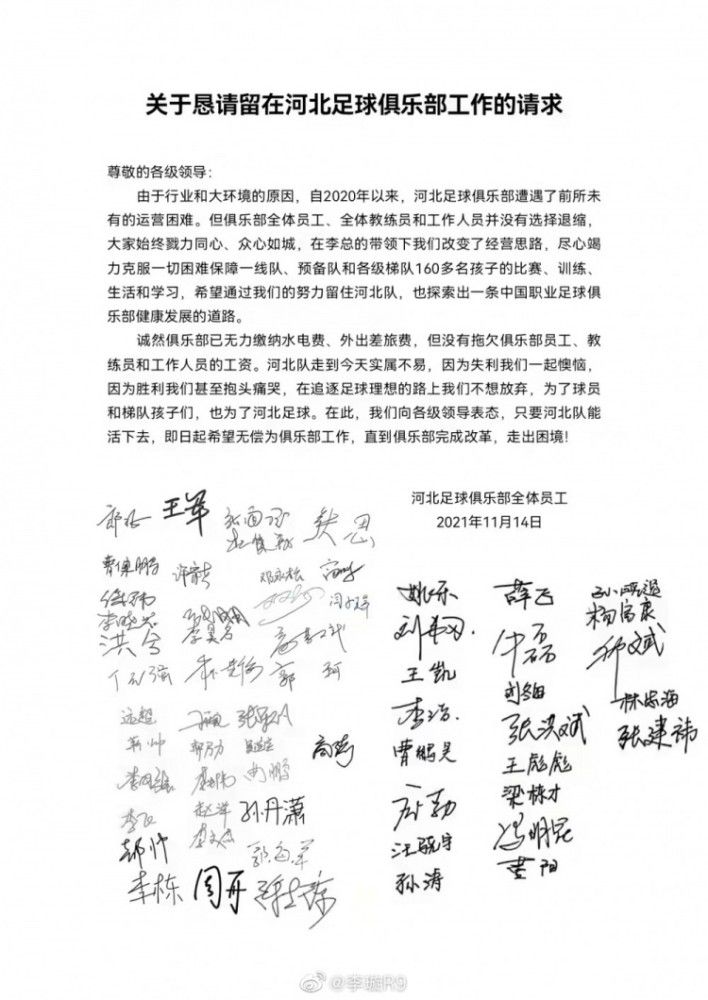 关于恳请留在河北足球俱乐部工作的请求
尊敬的各级领导：
由于行业和大环境的原因，自2020年以来，河北足球俱乐部遭遇了前所未
有的运营困难。但俱乐部全体员工、全体教练员和工作人员并没有选择退缩，
大家始终戮力同心、众心如城，在李总的带领下我们改变了经营思路，尽心竭
力克服一切困难保障一线队、预备队和各级梯队160多名孩子的比赛、训练、
生活和学习，希望通过我们的努力留住河北队，也探索出一条中国职业足球俱
乐部健康发展的道路。
诚然俱乐部已无力缴纳水电费、外出差旅费，但没有拖欠俱乐部员工、教
练员和工作人员的工资。河北队走到今天实属不易，因为失利我们一起懊恼，
因为胜利我们甚至抱头痛哭，在追逐足球理想的路上我们不想放弃，为了球员
和梯队孩子们，也为了河北足球。在此，我们向各级领导表态，只要河北队能
活下去，即日起希望无偿为俱乐部工作，直到俱乐部完成改革，走出困境!
河北足球俱乐部全体员工
2021年11月14日
王军
洪兮
郭珂
姚乐
薛飞
杨富康
王凯
李浩
张洪斌
林宏海
张建祎
曹鹏昊
王彪彪
梁栋才
汪骁宇
冯明昆
孙涛
董阳
赵洋
孙丹潇
郝帅
李栋
周开
@李璇R9